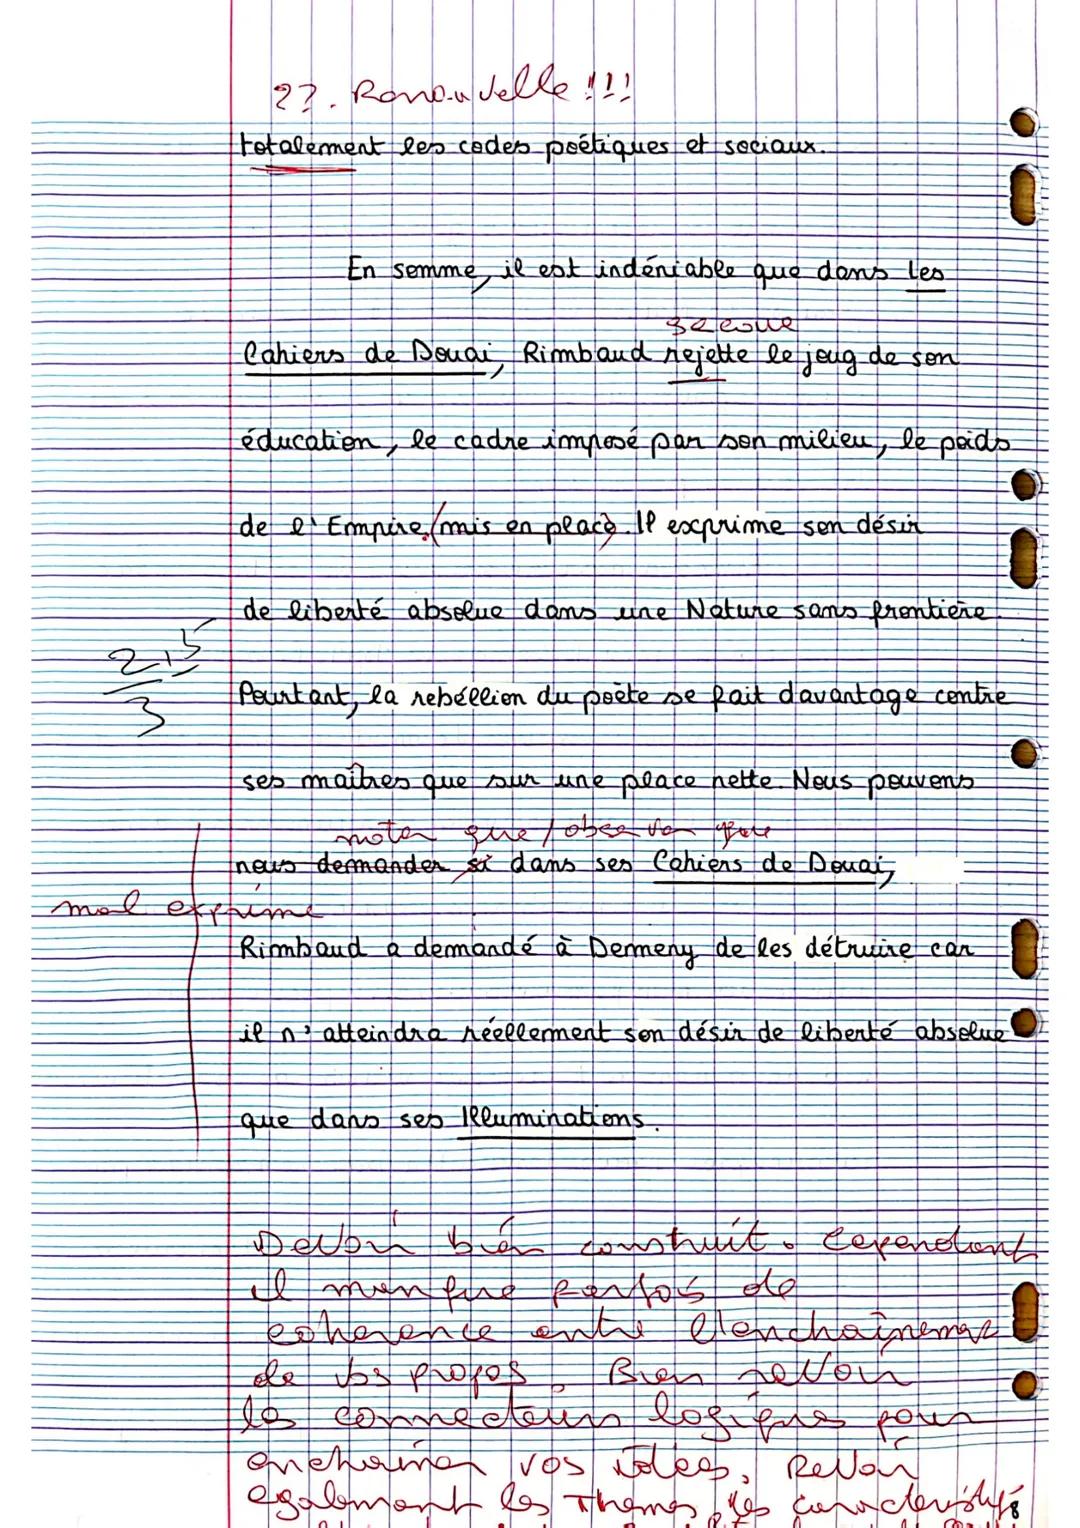 ??. Renouvelle !!!
totalement les codes poétiques et sociaux.
En somme, il est indéniable que dans Les
secoue
Cahiers de Douai, Rimbaud rejette le joug de son
éducation, le cadre imposé par son milieu, le poids
de l'Empire (mis en place). Il exprime son désir
de liberté absolue dans une Nature sans frontière.
2,5
3
Pourtant, la rebéllion du poète se fait davantage contre
ses maîtres que sur une place nette. Nous pouvons
noter que / observer que
nous demander si dans ses Cahiers de Douai,
mal exprimé
Rimbaud a demandé à Demeny de les détruire car
il n'atteindra réellement son désir de liberté absolue
que dans ses Illuminations.
Devoir bien construit. Cependant
il manque parfois de
cohérence entre l'enchaînement
de vos propos. Bien revoir
les connecteurs logiques pour
enchaîner vos idées. Revoir
egalement les Themes, les caractéristiques
8